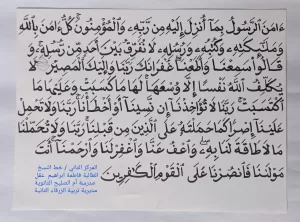 ءَامَنَ ٱلرَّسُولُ بِمَآ أُنزِلَ إِلَيْهِ مِن رَّبِّهِۦ وَٱلْمُؤْمِنُونَ ۚ كُلٌّ ءَامَنَ بِٱللَّهِ
وَمَلَٰٓئِكَتِهِۦ وَكُتُبِهِۦ وَرُسُلِهِۦ لَا نُفَرِّقُ بَيْنَ أَحَدٍ مِّن رُّسُلِهِۦ ۚ وَ
قَالُوا۟ سَمِعْنَا وَأَطَعْنَا ۖ غُفْرَانَكَ رَبَّنَا وَإِلَيْكَ ٱلْمَصِيرُ لَا
يُكَلِّفُ ٱللَّهُ نَفْسًا إِلَّا وُسْعَهَا ۚ لَهَا مَا كَسَبَتْ وَعَلَيْهَا مَا
ٱكْتَسَبَتْ ۗ رَبَّنَا لَا تُؤَاخِذْنَآ إِن نَّسِينَآ أَوْ أَخْطَأْنَا ۚ رَبَّنَا وَلَا تَحْمِلْ
عَلَيْنَآ إِصْرًا كَمَا حَمَلْتَهُۥ عَلَى ٱلَّذِينَ مِن قَبْلِنَا ۚ رَبَّنَا وَلَا تُحَمِّلْنَا
مَا لَا طَاقَةَ لَنَا بِهِۦ ۖ وَٱعْفُ عَنَّا وَٱغْفِرْ لَنَا وَٱرْحَمْنَآ ۚ أَنتَ
مَوْلَىٰنَا فَٱنصُرْنَا عَلَى ٱلْقَوْمِ ٱلْكَٰفِرِينَ
المركز الثاني / خط النسخ
الطالبة فاطمة ابراهيم عقل
مدرسة أم الصليح الثانوية
مديرية تربية الزرقاء الثانية